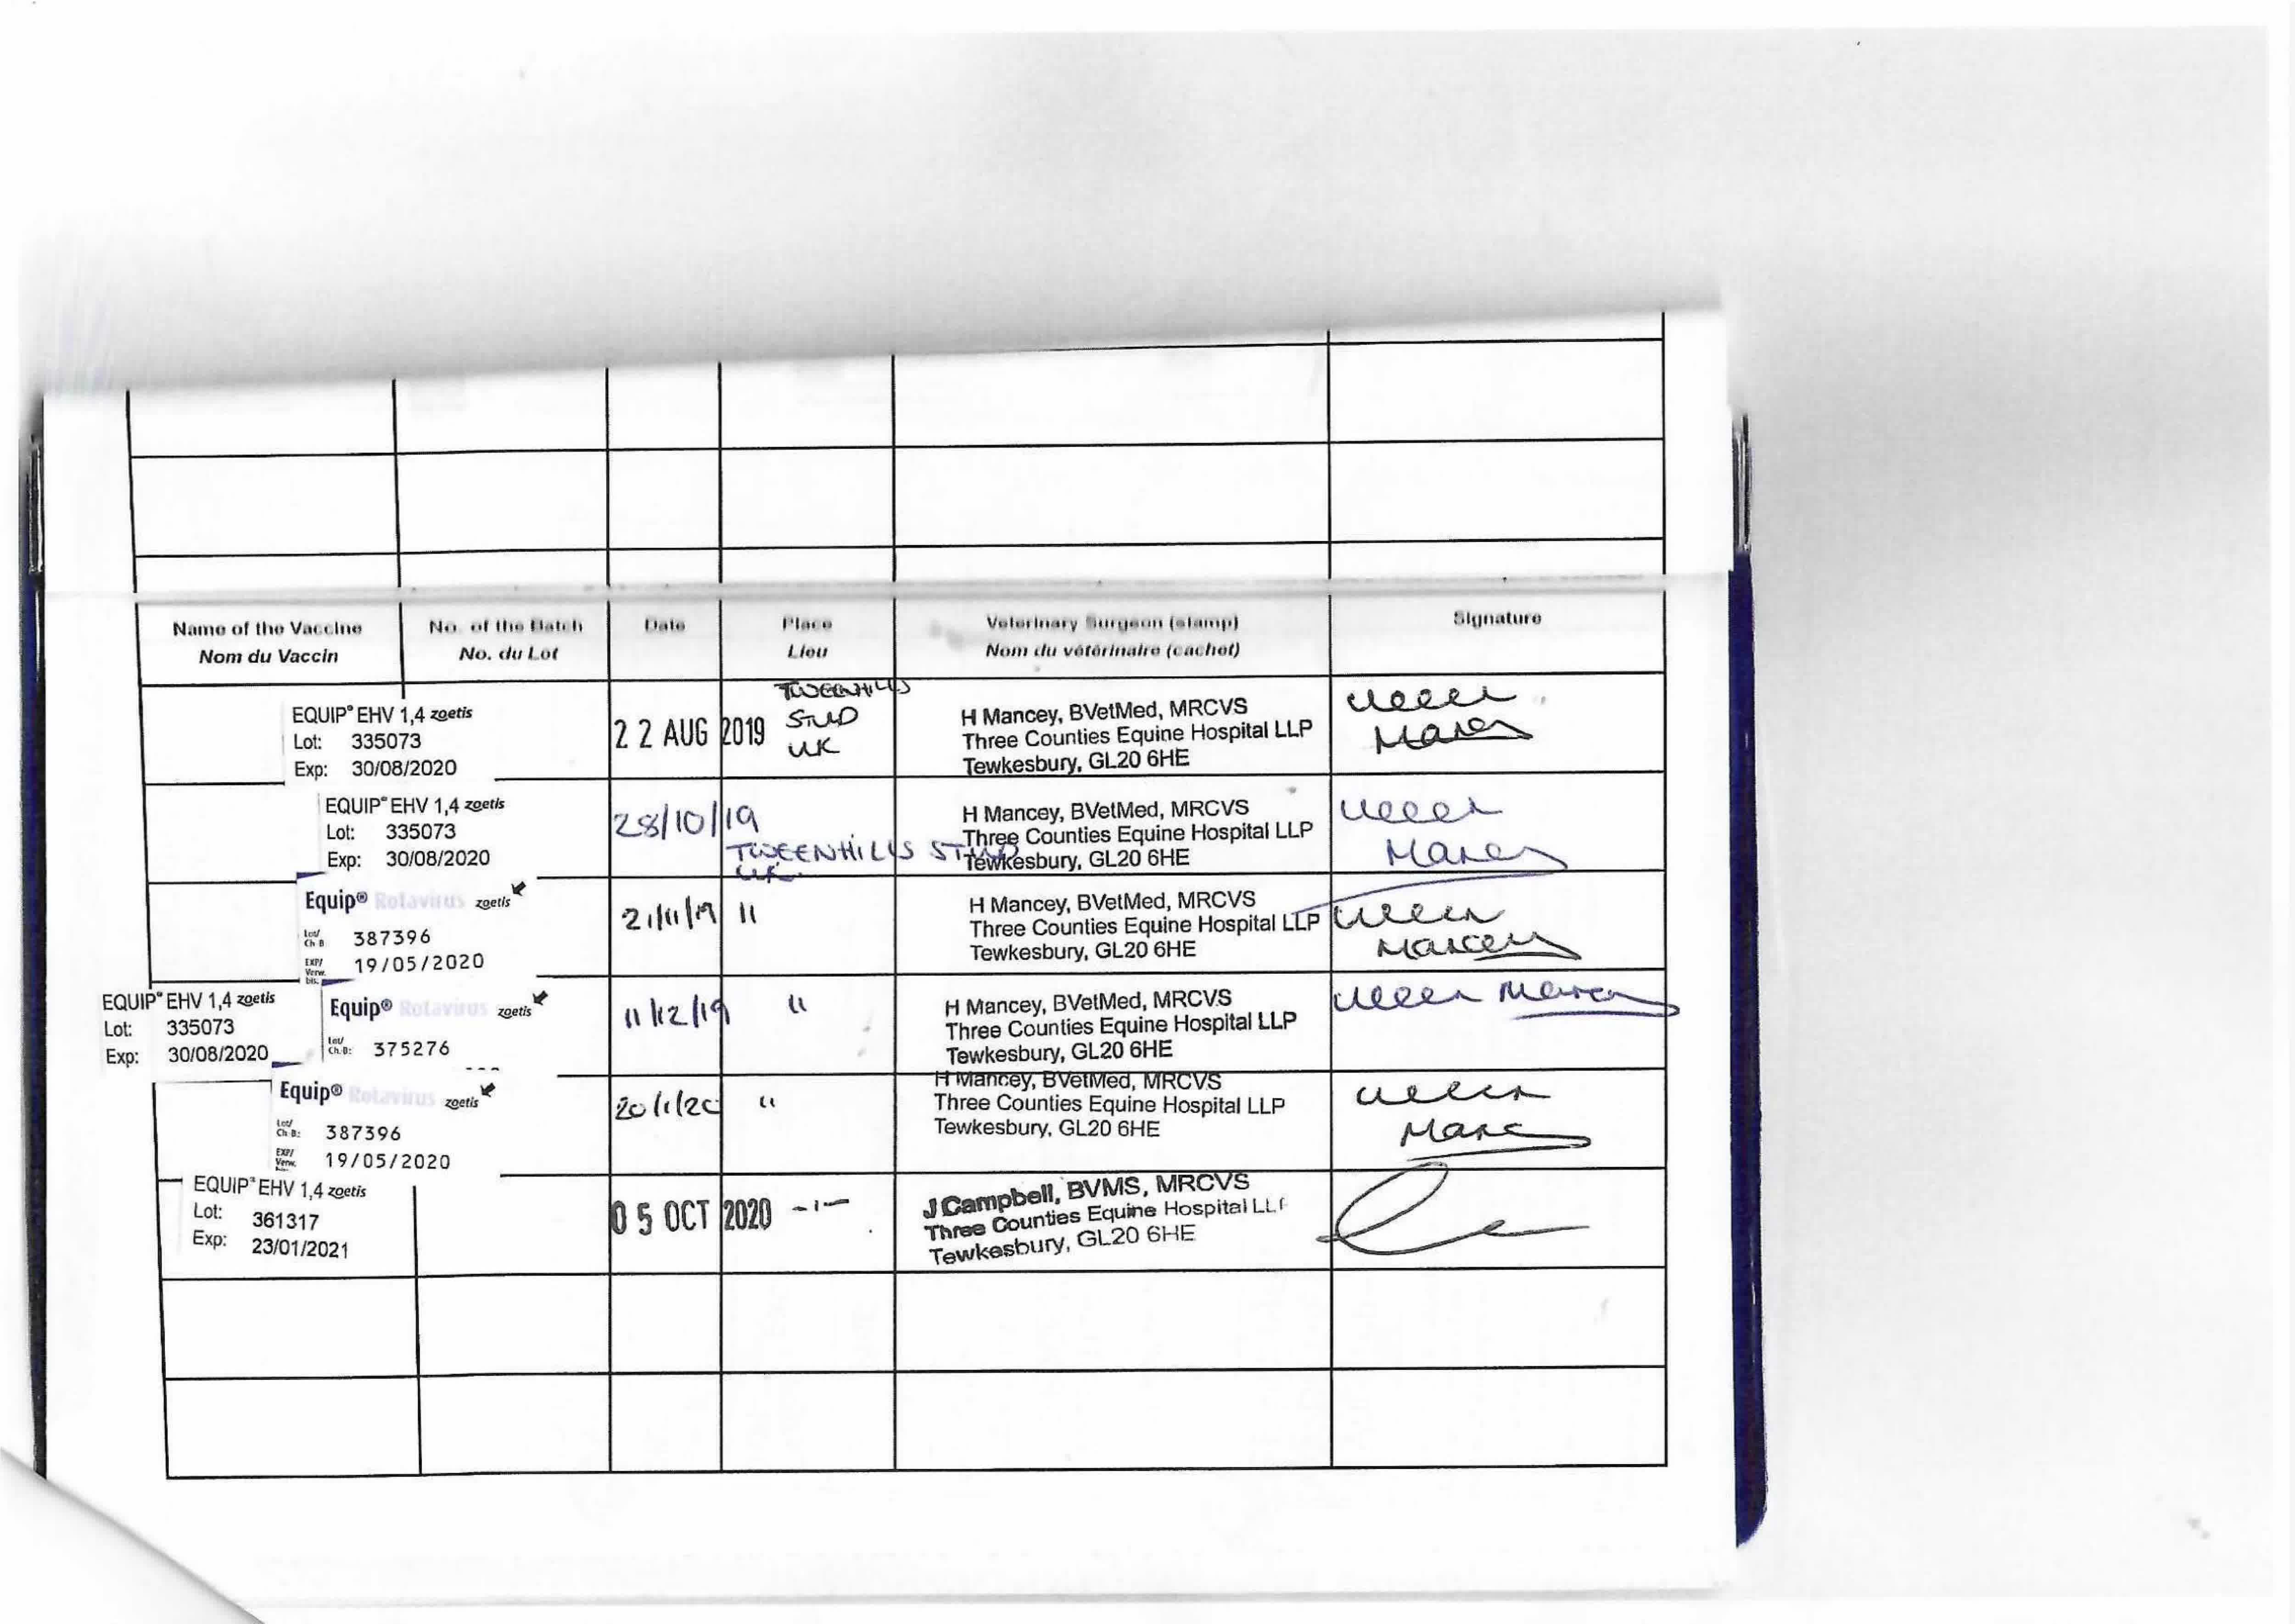 Name of the Vaccine No. of the Batch Date Place Veterinary Surgeon (stamp) Signature
Nom du Vaccin No. du Lot Lieu Nom du vétérinaire (cachet)
TWEENHILLS
STUD
UK
EQUIP® EHV 1,4 zoetis
Lot: 335073
Exp: 30/08/2020
22 AUG 2019
H Mancey, BVetMed, MRCVS
Three Counties Equine Hospital LLP
Tewkesbury, GL20 6HE
EQUIP® EHV 1,4 zoetis
Lot: 335073
Exp: 30/08/2020
28/10/19
TWEENHILLS STUD
UK
H Mancey, BVetMed, MRCVS
Three Counties Equine Hospital LLP
Tewkesbury, GL20 6HE
Equip® Rotavirus zoetis
Lot/
Ch-B 387396
EXP/
Verw.
bis. 19/05/2020
21/11/19 "
H Mancey, BVetMed, MRCVS
Three Counties Equine Hospital LLP
Tewkesbury, GL20 6HE
EQUIP® EHV 1,4 zoetis
Lot: 335073
Exp: 30/08/2020
Equip® Rotavirus zoetis
Lot/
Ch.B: 375276
11/12/19 "
H Mancey, BVetMed, MRCVS
Three Counties Equine Hospital LLP
Tewkesbury, GL20 6HE
Equip® Rotavirus zoetis
Lot/
Ch-B: 387396
EXP/
Verw. 19/05/2020
20/1/20 "
H Mancey, BVetMed, MRCVS
Three Counties Equine Hospital LLP
Tewkesbury, GL20 6HE
EQUIP® EHV 1,4 zoetis
Lot: 361317
Exp: 23/01/2021
05 OCT 2020 -ı-
J Campbell, BVMS, MRCVS
Three Counties Equine Hospital LLP
Tewkesbury, GL20 6HE